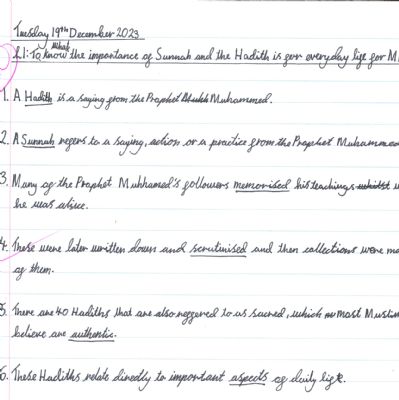 Tuesday 19th December 2023
LI: To know what the importance of Sunnah and the Hadith is for everyday life for M
1. A Hadith is a saying from the Prophet Muhammed.
2. A Sunnah refers to a saying, action or a practice from the Prophet Muhammed
3. Many of the Prophet Muhhamed's followers memorised his teachings whilst
he was alive.
4. These were later written down and scrutinised and then collections were ma
of them.
5. There are 40 Hadiths that are also reffered to as sacred, which most Muslim
believe are authentic.
6. These Hadiths relate directly to important aspects of daily life.